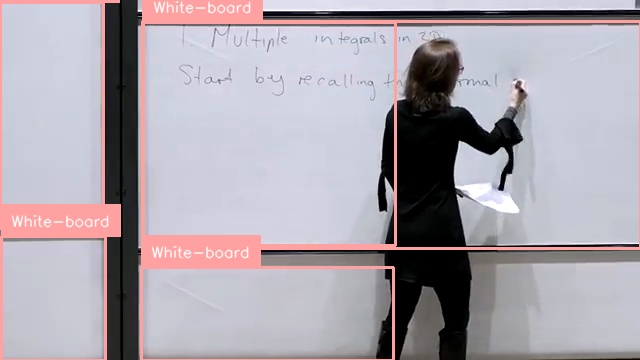 White-board
1. Multiple integrals in 2D
Start by recalling the
White-board
White-board